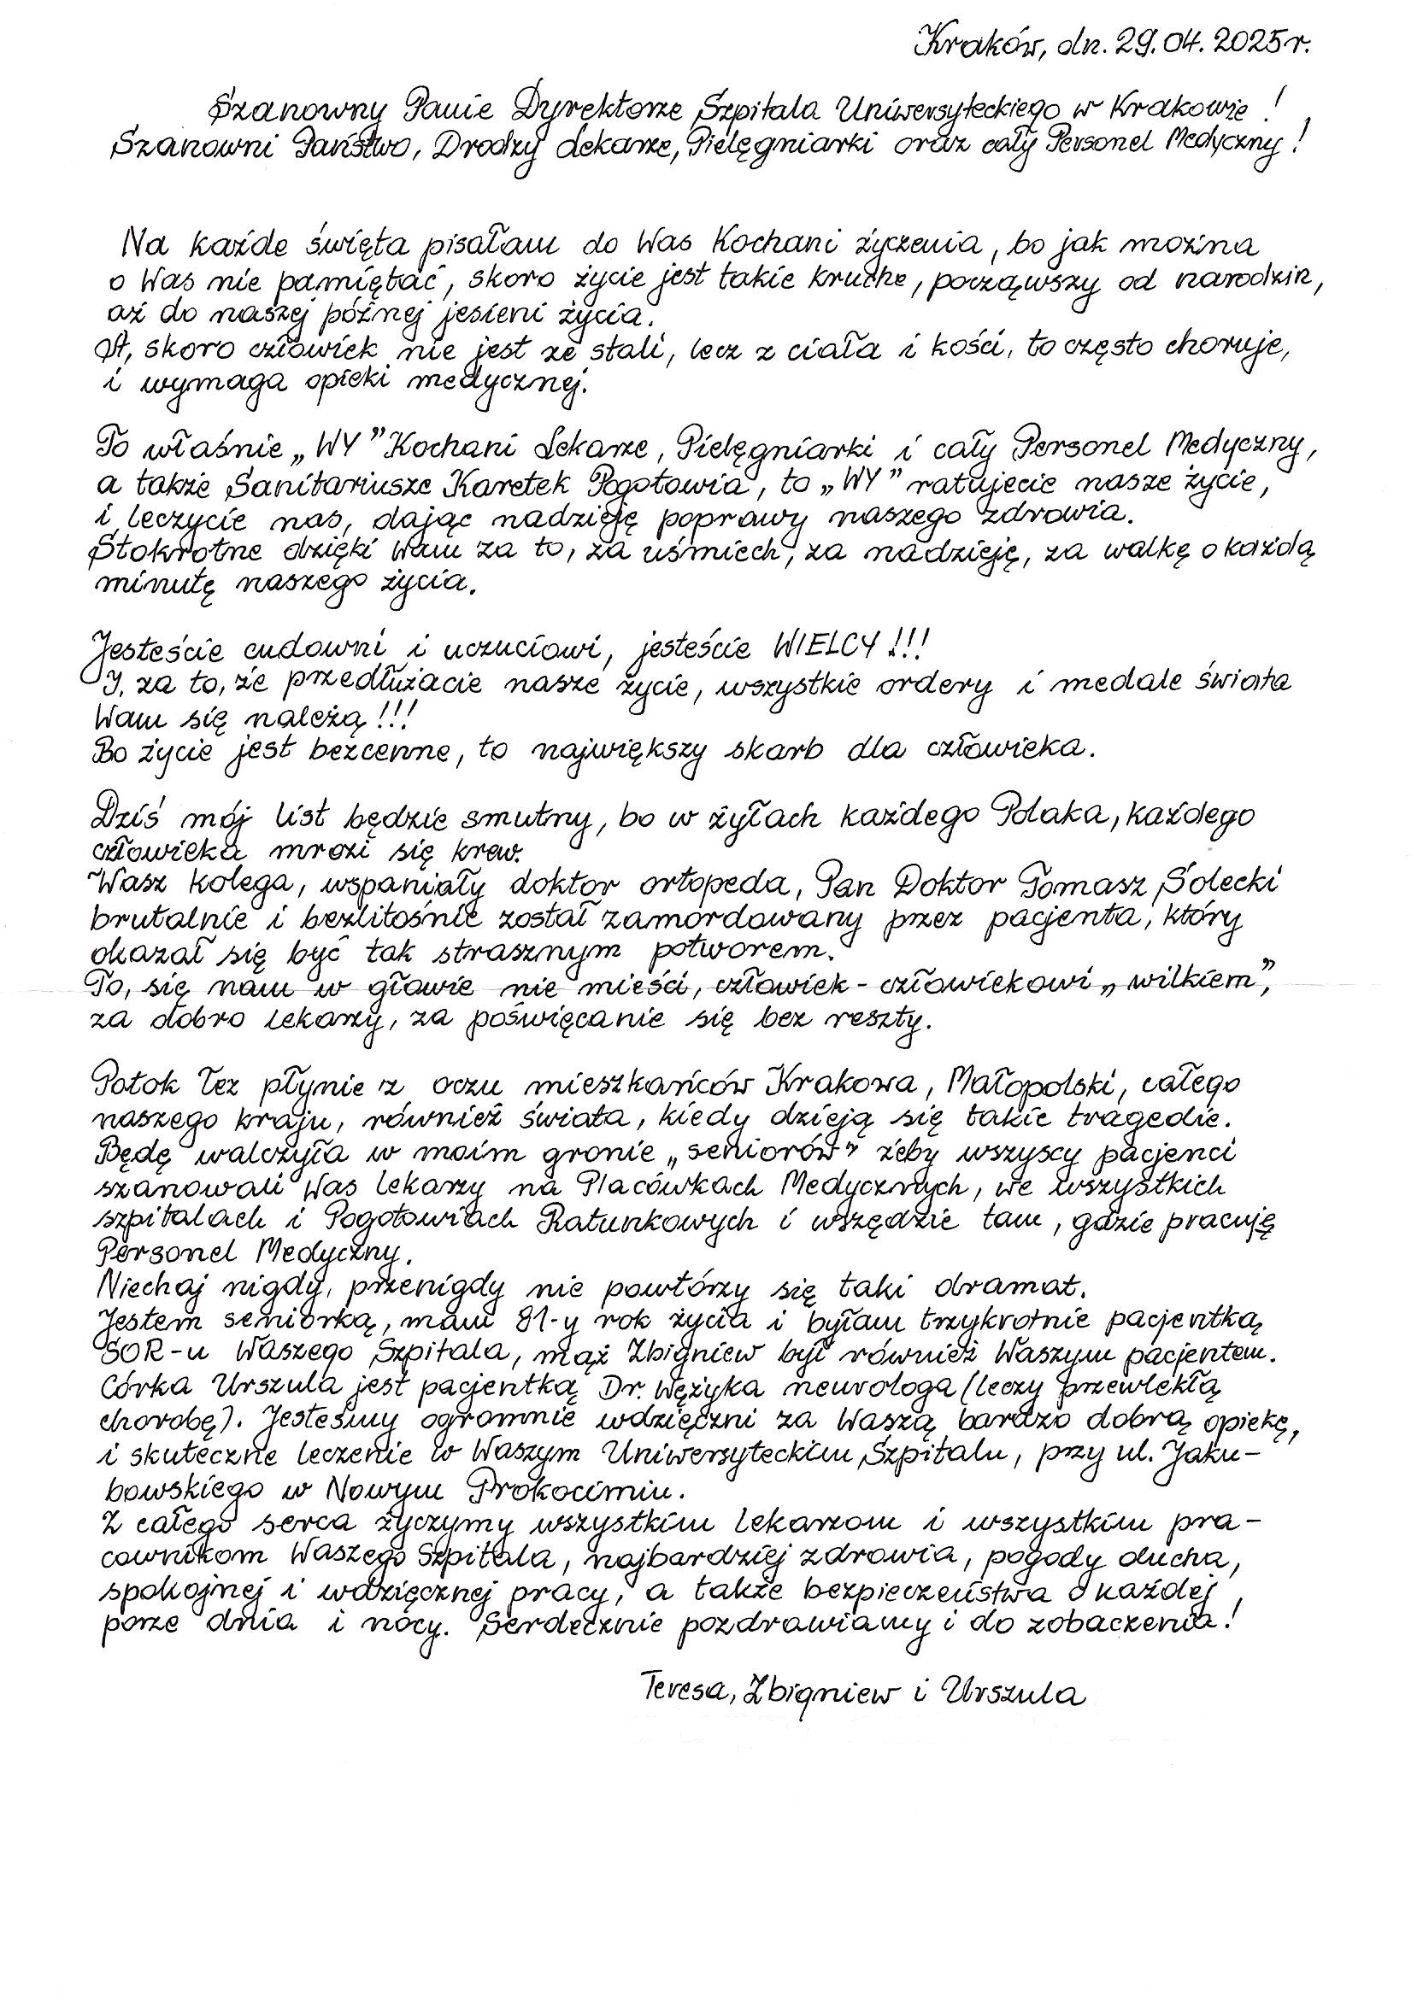 Kraków, dn. 29.04.2025r.
Szanowny Panie Dyrektorze Szpitala Uniwersyteckiego w Krakowie!
Szanowni Państwo, Drodzy Lekarze, Pielęgniarki oraz cały Personel Medyczny!
Na każde święta pisałam do Was Kochani życzenia, bo jak można
o Was nie pamiętać, skoro życie jest takie kruche, począwszy od narodzin,
aż do naszej późnej jesieni życia.
A, skoro człowiek nie jest ze stali, lecz z ciała i kości, to często choruje,
i wymaga opieki medycznej.
To właśnie „WY” Kochani Lekarze, Pielęgniarki i cały Personel Medyczny,
a także Sanitariusze Karetek Pogotowia, to „WY” ratujecie nasze życie,
i leczycie nas, dając nadzieję poprawy naszego zdrowia.
Stokrotne dzięki Wam za to, za uśmiech, za nadzieję, za walkę o każdą
minutę naszego życia.
Jesteście cudowni i uczuciowi, jesteście WIELCY!!!
I, za to, że przedłużacie nasze życie, wszystkie ordery i medale świata
Wam się należą!!!
Bo życie jest bezcenne, to największy skarb dla człowieka.
Dziś mój list będzie smutny, bo w żyłach każdego Polaka, każdego
człowieka mrozi się krew.
Wasz kolega, wspaniały doktor ortopeda, Pan Doktor Tomasz Solecki
brutalnie i bezlitośnie został zamordowany przez pacjenta, który
okazał się być tak strasznym potworem.
To, się nam w głowie nie mieści, człowiek - człowiekowi „wilkiem”,
za dobro lekarzy, za poświęcanie się bez reszty.
Potok łez płynie z oczu mieszkańców Krakowa, Małopolski, całego
naszego kraju, również świata, kiedy dzieją się takie tragedie.
Będę walczyła w moim gronie „seniorów” żeby wszyscy pacjenci
szanowali Was lekarzy na Placówkach Medycznych, we wszystkich
szpitalach i Pogotowiach Ratunkowych i wszędzie tam, gdzie pracuję
Personel Medyczny.
Niechaj nigdy, przenigdy nie powtórzy się taki dramat.
Jestem seniorką, mam 81-y rok życia i byłam trzykrotnie pacjentką
SOR-u Waszego Szpitala, mąż Zbigniew był również Waszym pacjentem.
Córka Urszula jest pacjentką Dr. Wężyka neurologa (leczy przewlekłą
chorobę). Jesteśmy ogromnie wdzięczni za Waszą bardzo dobrą opiekę,
i skuteczne leczenie w Waszym Uniwersyteckim Szpitalu, przy ul. Jaku-
bowskiego w Nowym Prokocimiu.
Z całego serca życzymy wszystkim lekarzom i wszystkim pra-
cownikom Waszego Szpitala, najbardziej zdrowia, pogody ducha,
spokojnej i wdzięcznej pracy, a także bezpieczeństwa o każdej
porze dnia i nocy. Serdecznie pozdrawiamy i do zobaczenia!
Teresa, Zbigniew i Urszula